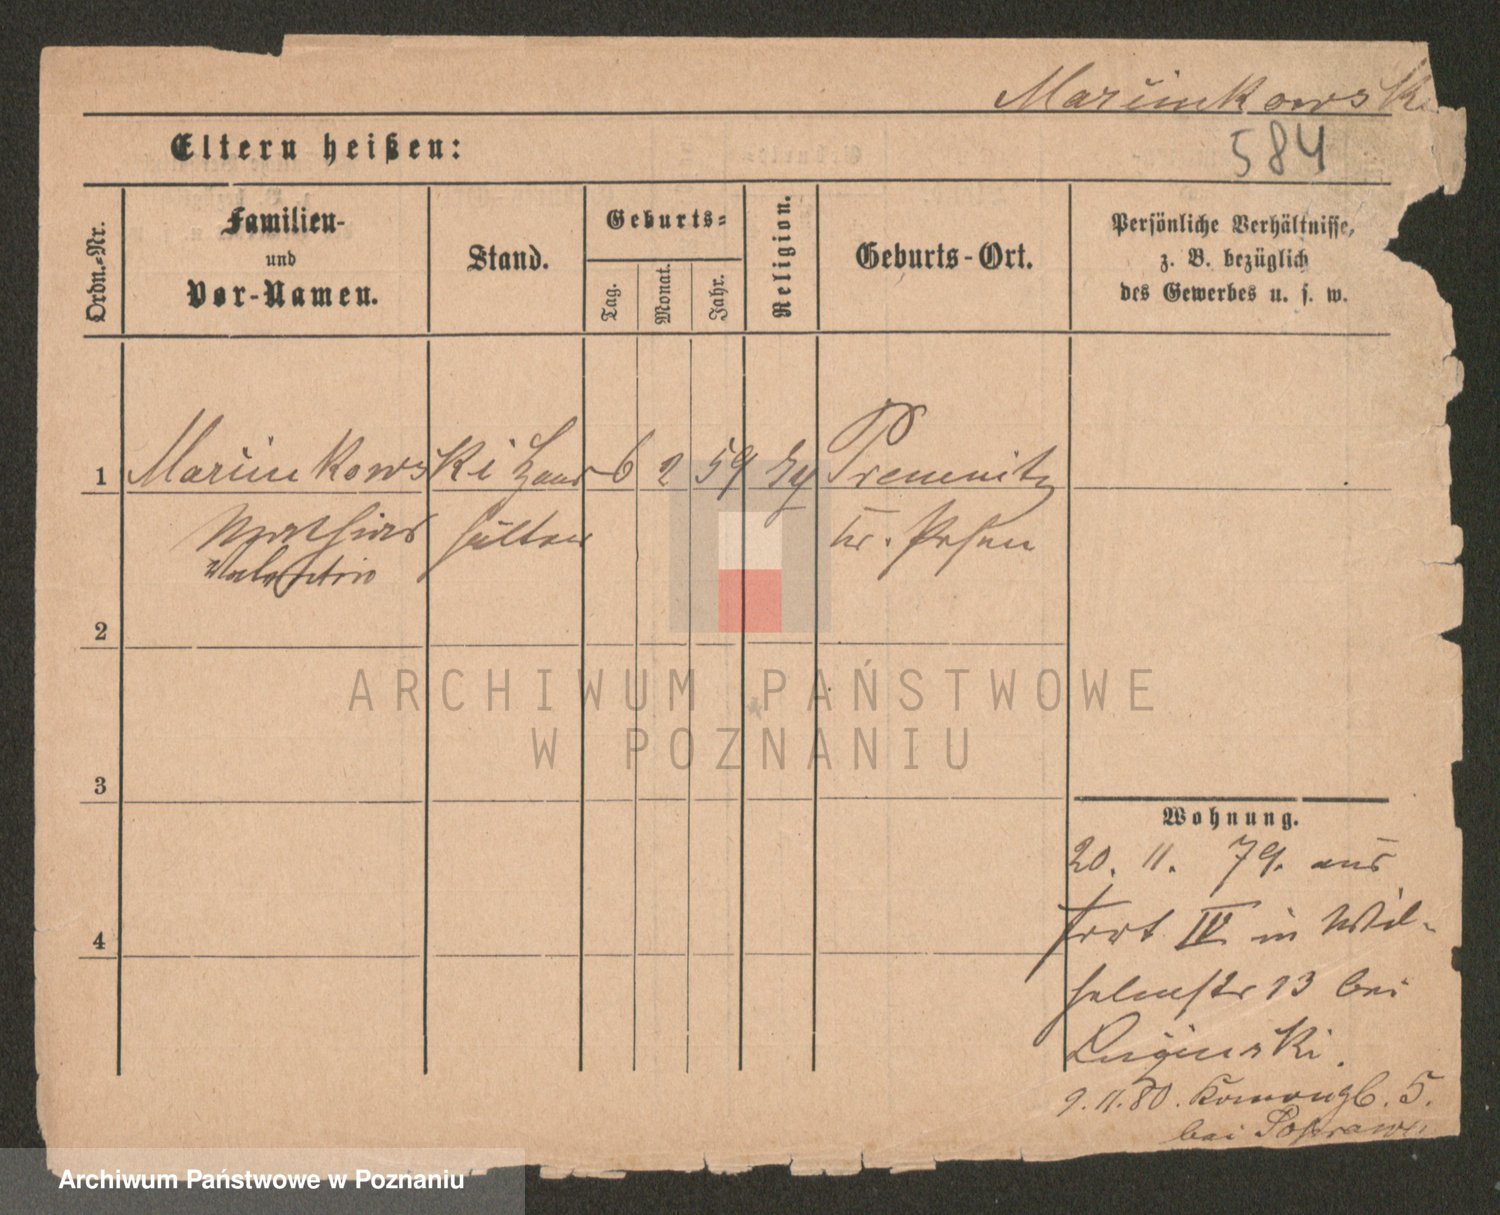 Marcinkowski
584
Eltern heißen:
Ordn.-Nr.
Familien-
und
Vor-Namen.
Stand.
Geburts-
Tag.
Monat.
Jahr.
Religion.
Geburts-Ort.
Persönliche Verhältnisse,
z. B. bezüglich
des Gewerbes u. s. w.
1 Marcinkowski Haus 6 2 59 Premnitz
Mathias hälter Kr. Posen
Valentin
2
3
4
Wohnung.
20. 11. 79. aus
Fort IV in Wil-
helmstr 13 bei
9. 11. 80. 5.
bei
ARCHIWUM PAŃSTWOWE
W POZNANIU
Archiwum Państwowe w Poznaniu